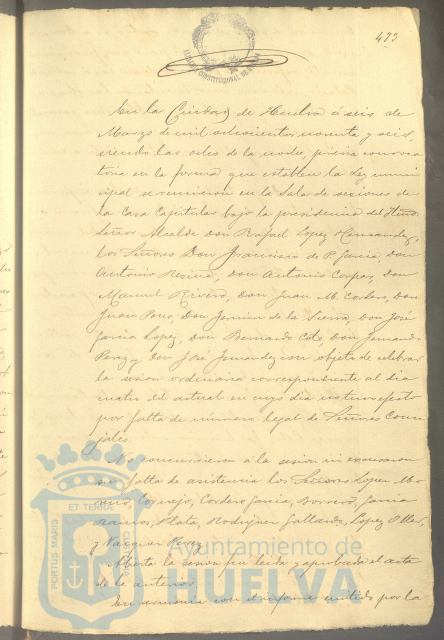 473
En la Ciudad de Huelva á seis de
Marzo de mil ochocientos noventa y seis,
siendo las ocho de la noche, prévia convoca
toria en la forma que establece la Ley muni
cipal se reunieron en la Sala de sesiones de
la Casa Capitular bajo la presidencia del Iltmo.
Señor Alcalde Don Rafael Lopez Hernandez,
los Señores Don Francisco de P. Garcia, Don
Antonio Regino, Don Antonio Corpas, Don
Manuel Rivero, Don Juan M. Cordero, Don
Juan Pons, Don de la Sierra, Don José
Garcia Lopez, Don Bernardo Coto, Don Fernando
Perez y Don José Fernandez con objeto de celebrar
la sesion ordinaria correspondiente al dia
cuatro del actual en cuyo dia no tuvo efecto
por falta de número legal de Señores Conce
jales.
No concurrieron á la sesion ni excusaron
su falta de asistencia los Señores Lopez Mo
reno, Cordero Garcia, Borrero, Garcia
Ramos, Plata, Rodriguez Gallardo, Lopez
y Vazquez Perez.
Abierta la sesion fué leida y aprobada el acta
de la anterior.
En armonia con el informe emitido por la
PORTUS MARIS ET TERRAE
Ayuntamiento de
HUELVA